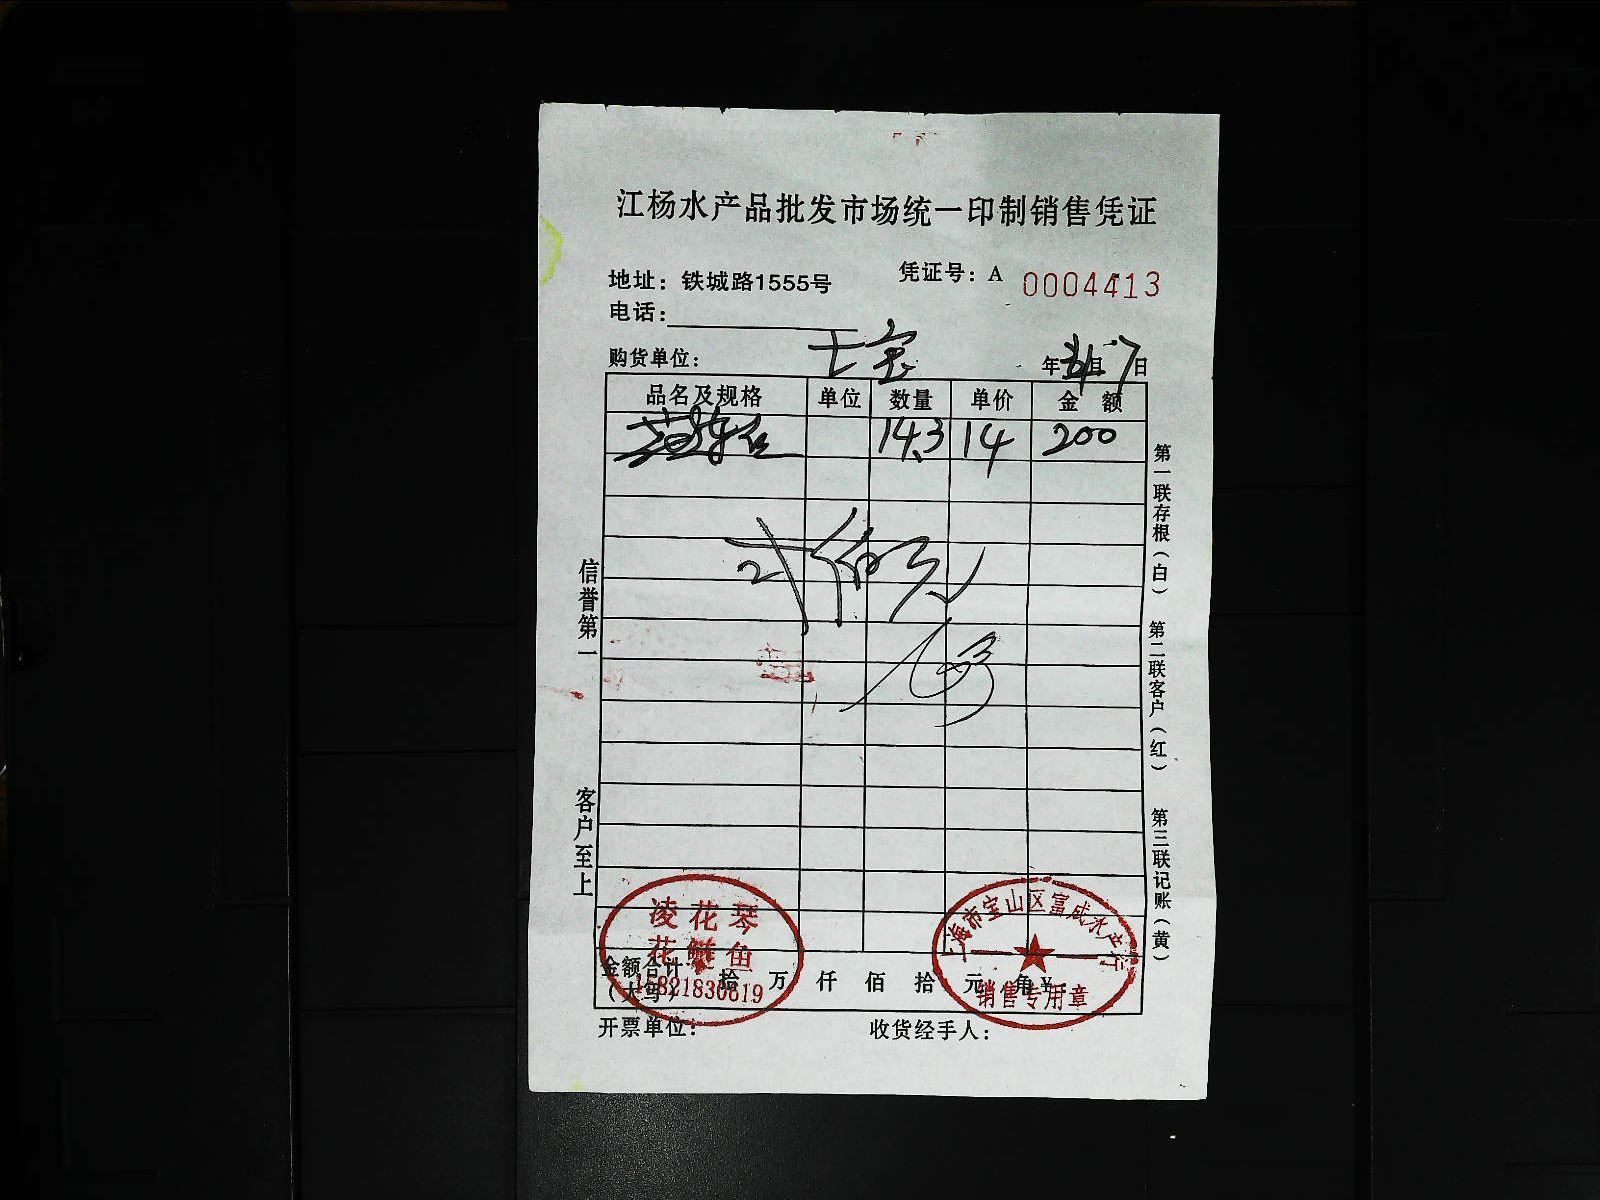 江杨水产品批发市场统一印制销售凭证
地址：铁城路1555号
凭证号：A 0004413
电话：
购货单位： 七宝
年 月 7日
品名及规格 单位 数量 单价 金额
14.3 14 200
贰佰元
信誉第一
客户至上
第一联存根（白） 第二联客户（红） 第三联记账（黄）
凌花琴
花鲢鱼
15821830619
上海市宝山区富成水产行
销售专用章
金额合计：
（大写） 拾 万 仟 佰 拾 元 角 ¥：
开票单位： 收货经手人：